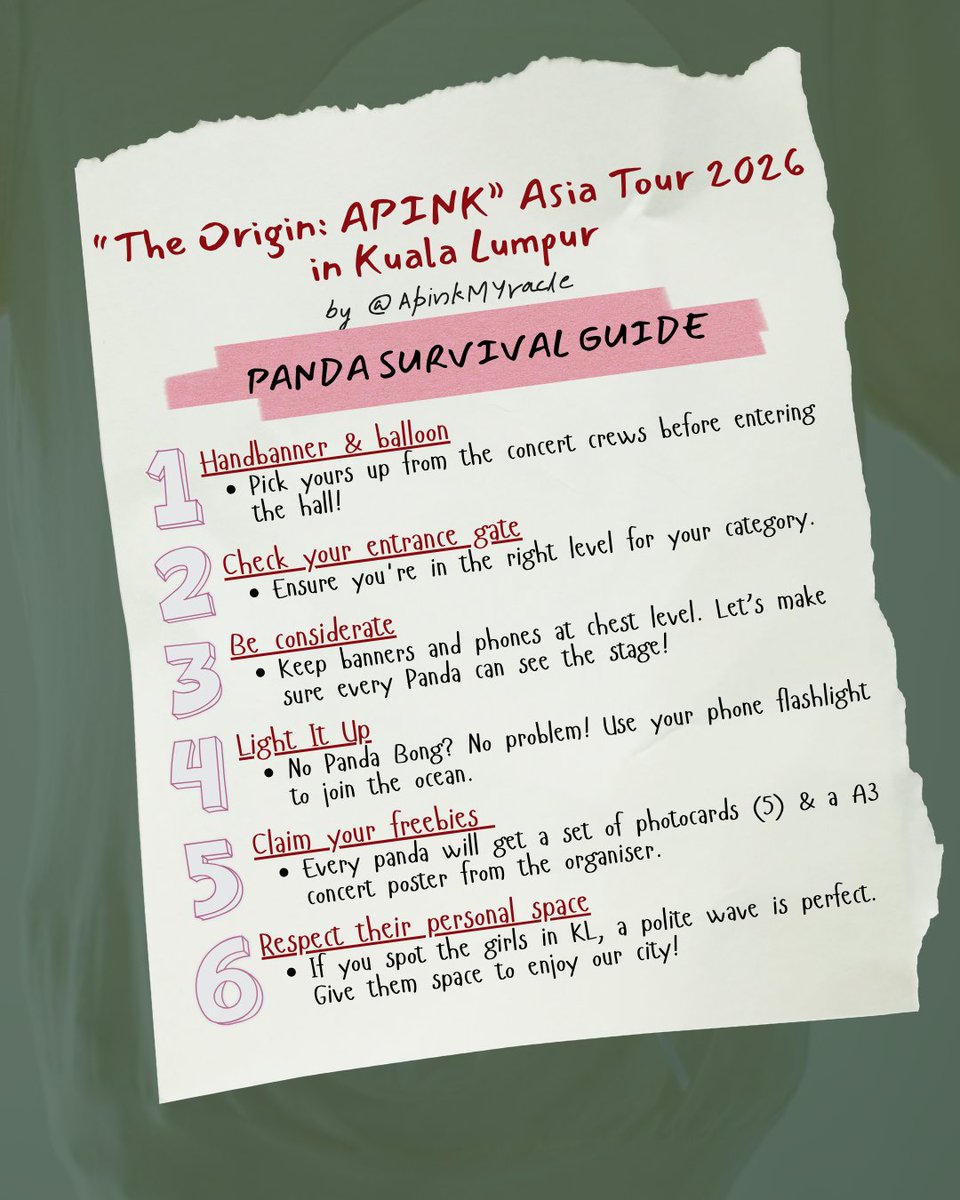 "The Origin: APINK" Asia Tour 2026
in Kuala Lumpur
by @ApinkMYracle
PANDA SURVIVAL GUIDE
1 Handbanner & balloon
• Pick yours up from the concert crews before entering
the hall!
2 Check your entrance gate
• Ensure you're in the right level for your category.
3 Be considerate
• Keep banners and phones at chest level. Let's make
sure every Panda can see the stage!
4 Light It Up
• No Panda Bong? No problem! Use your phone flashlight
to join the ocean.
5 Claim your freebies
• Every panda will get a set of photocards (5) & a A3
concert poster from the organiser.
6 Respect their personal space
• If you spot the girls in KL, a polite wave is perfect.
Give them space to enjoy our city!